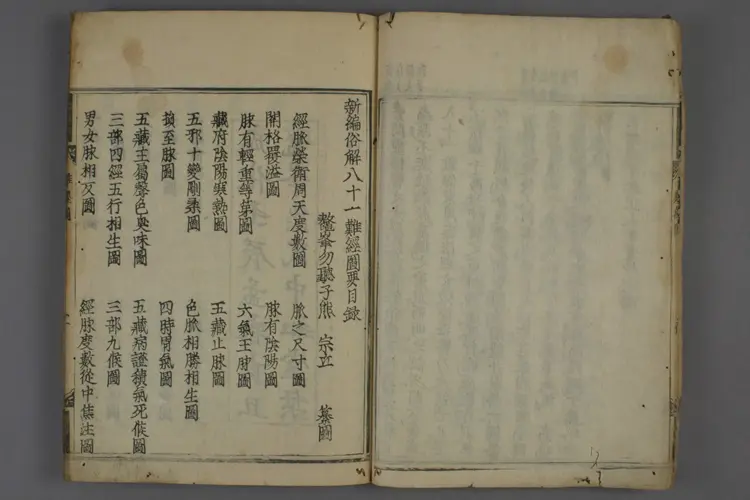 新編俗解八十一難經圖要目錄
鰲峯勿聽子熊 宗立 纂圖
經脈榮衛周天度數圖 脈之尺寸圖
關格覆溢圖 脉有陰陽圖
脉有輕重等第圖 六氣王脉圖
藏府陰陽寒熱圖 五藏止脉圖
五邪十變剛柔圖 色脈相勝相生圖
損至脉圖 四時胃氣圖
五藏主屬聲色臭味圖 五藏病證積氣死候圖
三部四經五行相生圖 三部九候圖
男女脉相反圖 經脉度數從中焦注圖